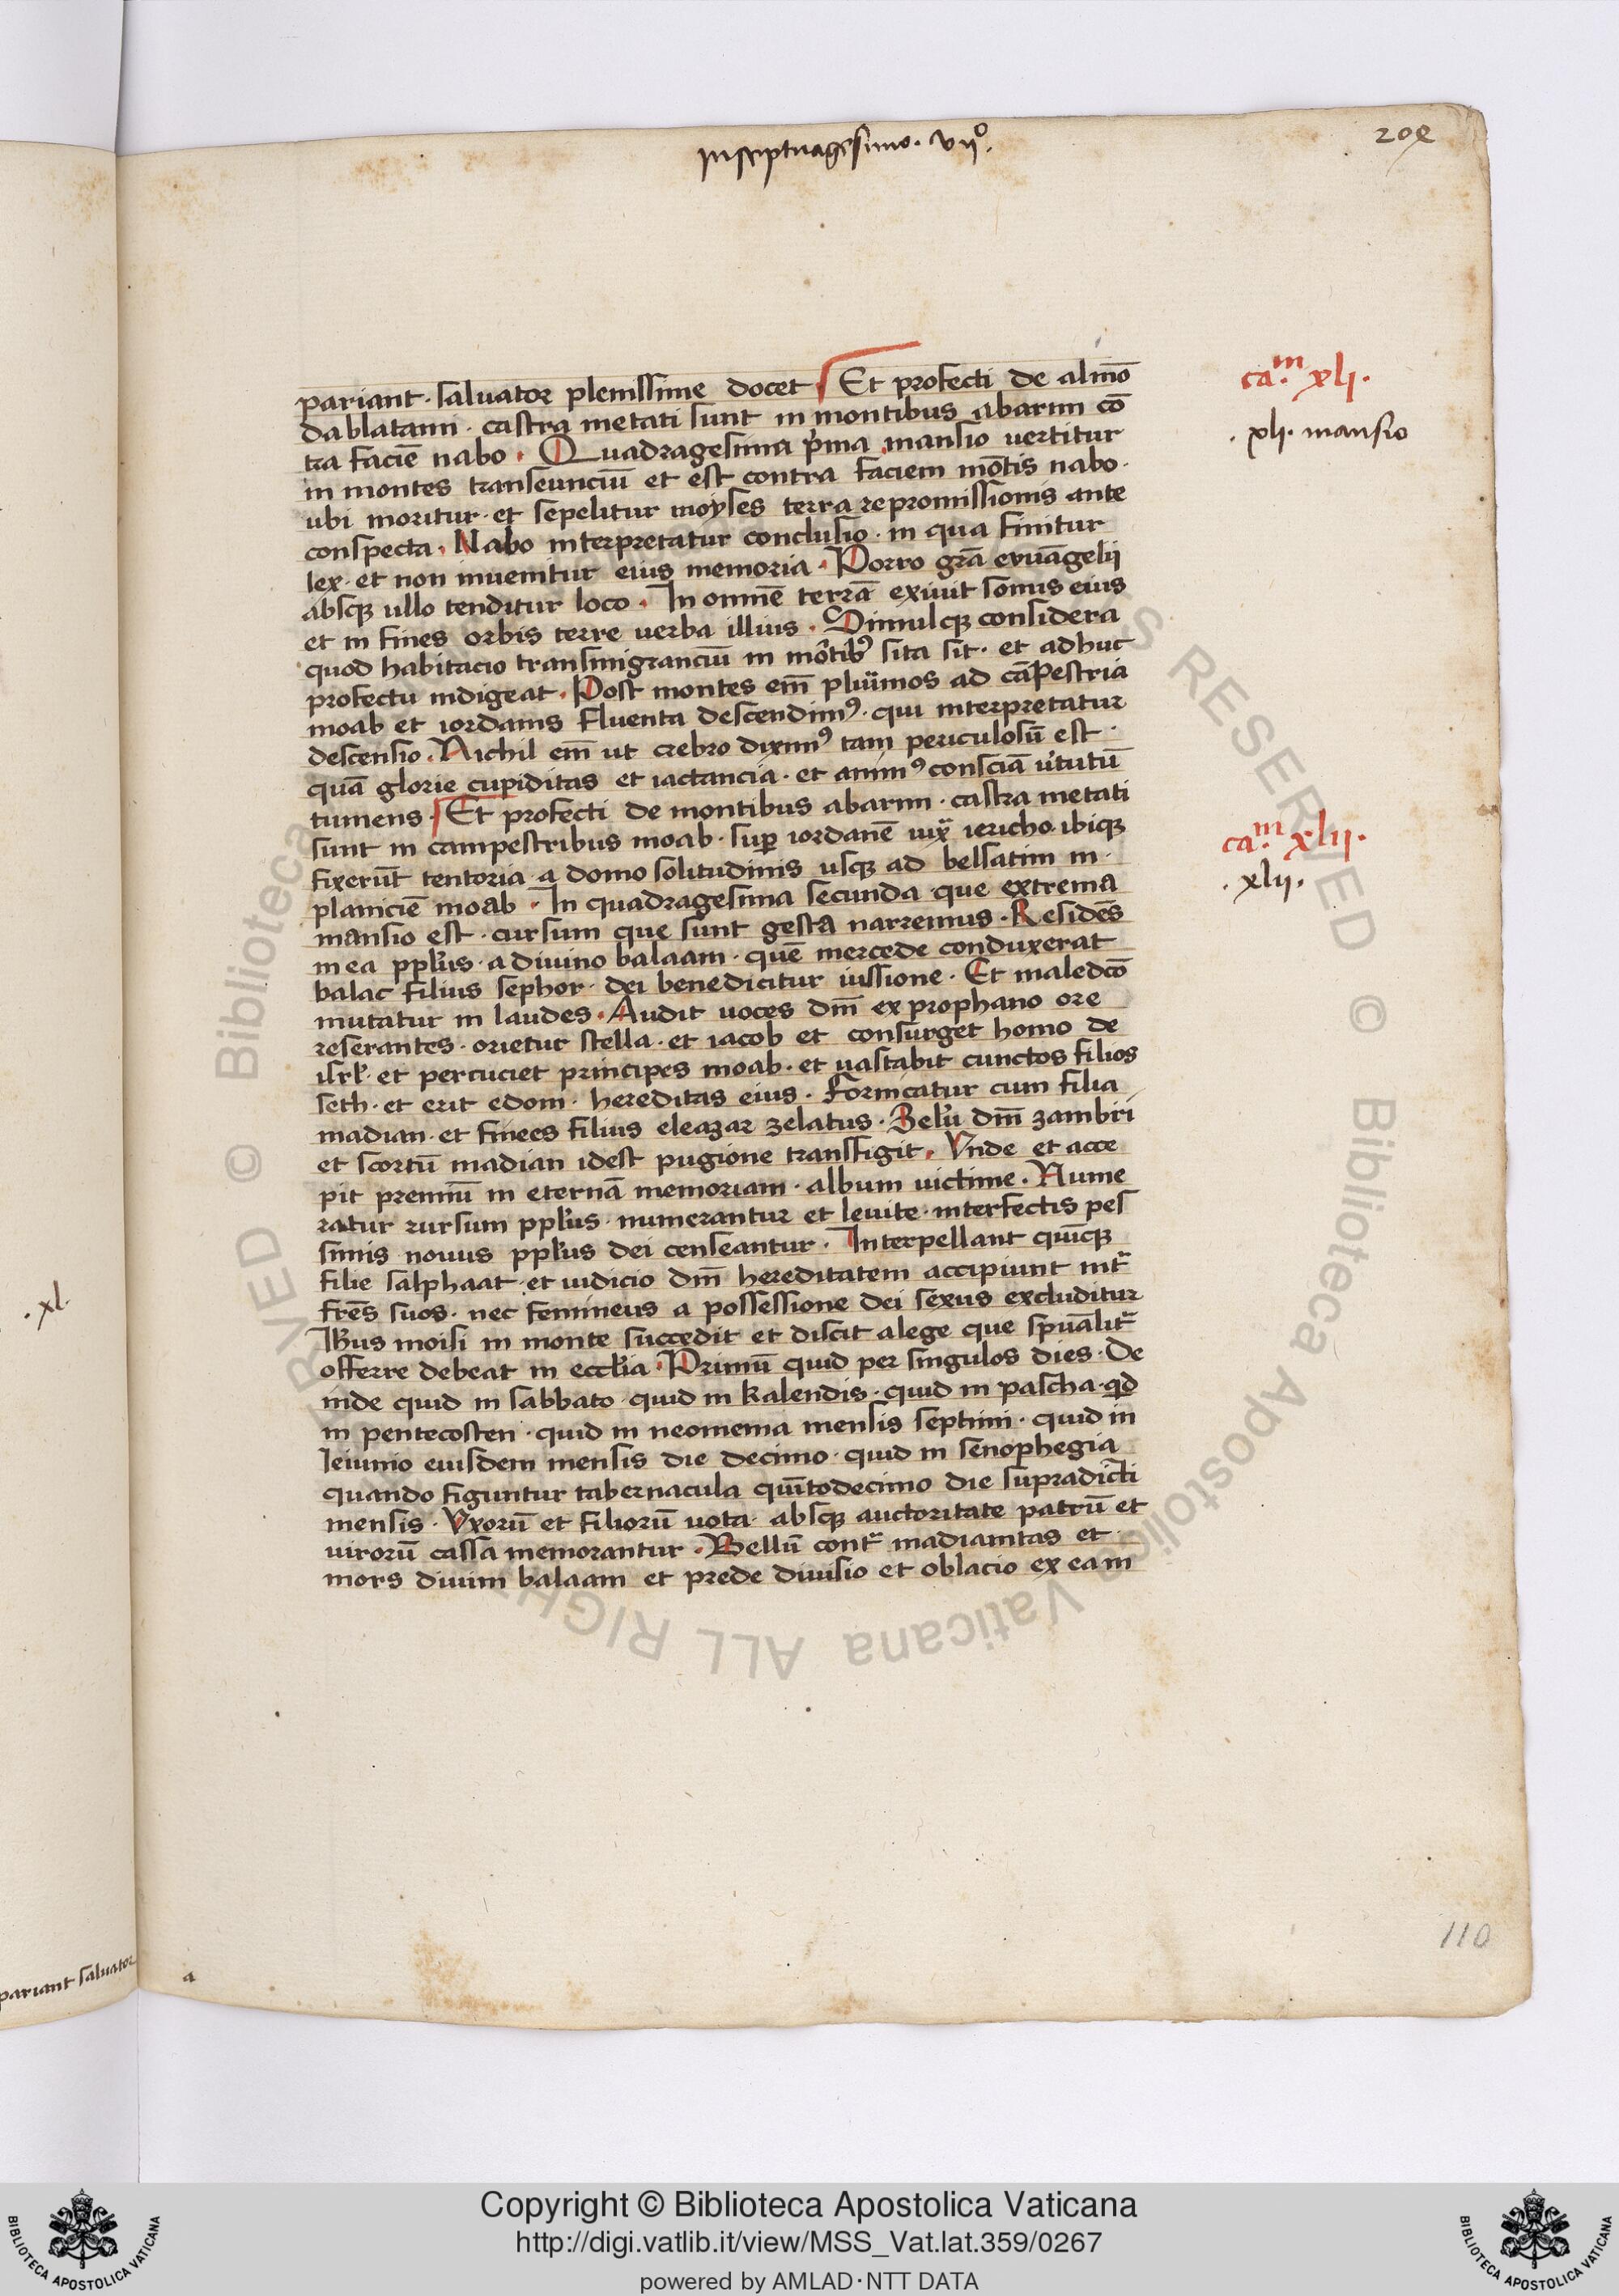 in septuagesimo. vijº.
pariant · saluator plenissime docet Et profecti de almō
dablataim · castra metati sunt in montibus abarim cō
tra faciē nabo . Quadragesima p̄ma mansio uertitur
in montes transeunciū et est contra faciem mōtis nabo ·
ubi moritur · et sepelitur moyses terra repromissionis ante
conspecta . Nabo interpretatur conclusio · in qua finitur
lex · et non inuenitur eius memoria . Porro grā evuāgelii
absqꝫ ullo tenditur loco . In omnē terrā exiuit sonus eius
et in fines orbis terre uerba illius . Simulqꝫ considera
quod habitacio transmigranciū in mōtibꝰ sita sit · et adhuc
profectu indigeat . Post montes em̄ plurimos ad cāpestria
moab et iordanis fluenta descendimꝰ · qui interpretatur
descensio . Nichil em̄ ut crebro diximꝰ tam periculosū est ·
quā glorie cupiditas et iactancia · et animꝰ consciā u'tutū
tumens . Et profecti de montibus abarim · castra metati
sunt in campestribus moab · sup iordanē iuxᵃ iericho · ibiqꝫ
fixerūt tentoria · a domo solitudinis usqꝫ ad belsatim in ·
planiciē moab . In quadragesima secunda · que extrema
mansio est · cursum que sunt gesta narremus . Residēs
in ea ppl'us · a diuino balaam · quē mercede conduxerat
balac filius sephor · dei benedicitur iussione . Et maledcō
mutatur in laudes . Audit uoces dm̄ ex prophano ore
reserantes · orietur stella · et iacob et consurget homo de
isrl' · et percuciet principes moab · et uastabit cunctos filios
seth · et erit edom · hereditas eius . Fornicatur cum filia
madian · et finees filius eleazar zelatus . Belu' dm̄ zambri
et scortū madian idest pugione transfigit . Vnde et acce
pit premiū in eternā memoriam · album uictime . Nume
ratur rursum ppl'us · numerantur et leuite · interfectis pes
simis nouus ppl'us dei censeantur . Interpellant quīcqꝫ
filie salphaat · et iudicio dm̄ hereditatem accipiunt intᵃ
frēs suos · nec femineus a possessione dei sexus excluditur
Ih'us moisi in monte succedit et discit alege que spūalit'
offerre debeat in eccl'ia . Primū quid per singulos dies · De
inde quid in sabbato · quid in kalendis · quid in pascha · qd
in pentecosten · quid in neomenia mensis septimi · quid in
Ieiunio eiusdem mensis die decimo · quid in senophegia
quando figuntur tabernacula quītodecimo die supradicti
mensis . Vxorū et filiorū uota · absqꝫ auctoritate patrū et
uirorū cassa memorantur . Bellū contᵃ madianitas et ·
mors diuini balaam et prede diuisio et oblacio ex ea in
caᵐ. xli.
. xli. mansio
caᵐ. xlii.
. xlij.
. xl.
pariant saluator
a
110
Copyright © Biblioteca Apostolica Vaticana
http://digi.vatlib.it/view/MSS_Vat.lat.359/0267
powered by AMLAD·NTT DATA
BIBLIOTECA APOSTOLICA VATICANA
BIBLIOTECA APOSTOLICA VATICANA
© Biblioteca Apostolica Vaticana ALL RIGHTS RESERVED